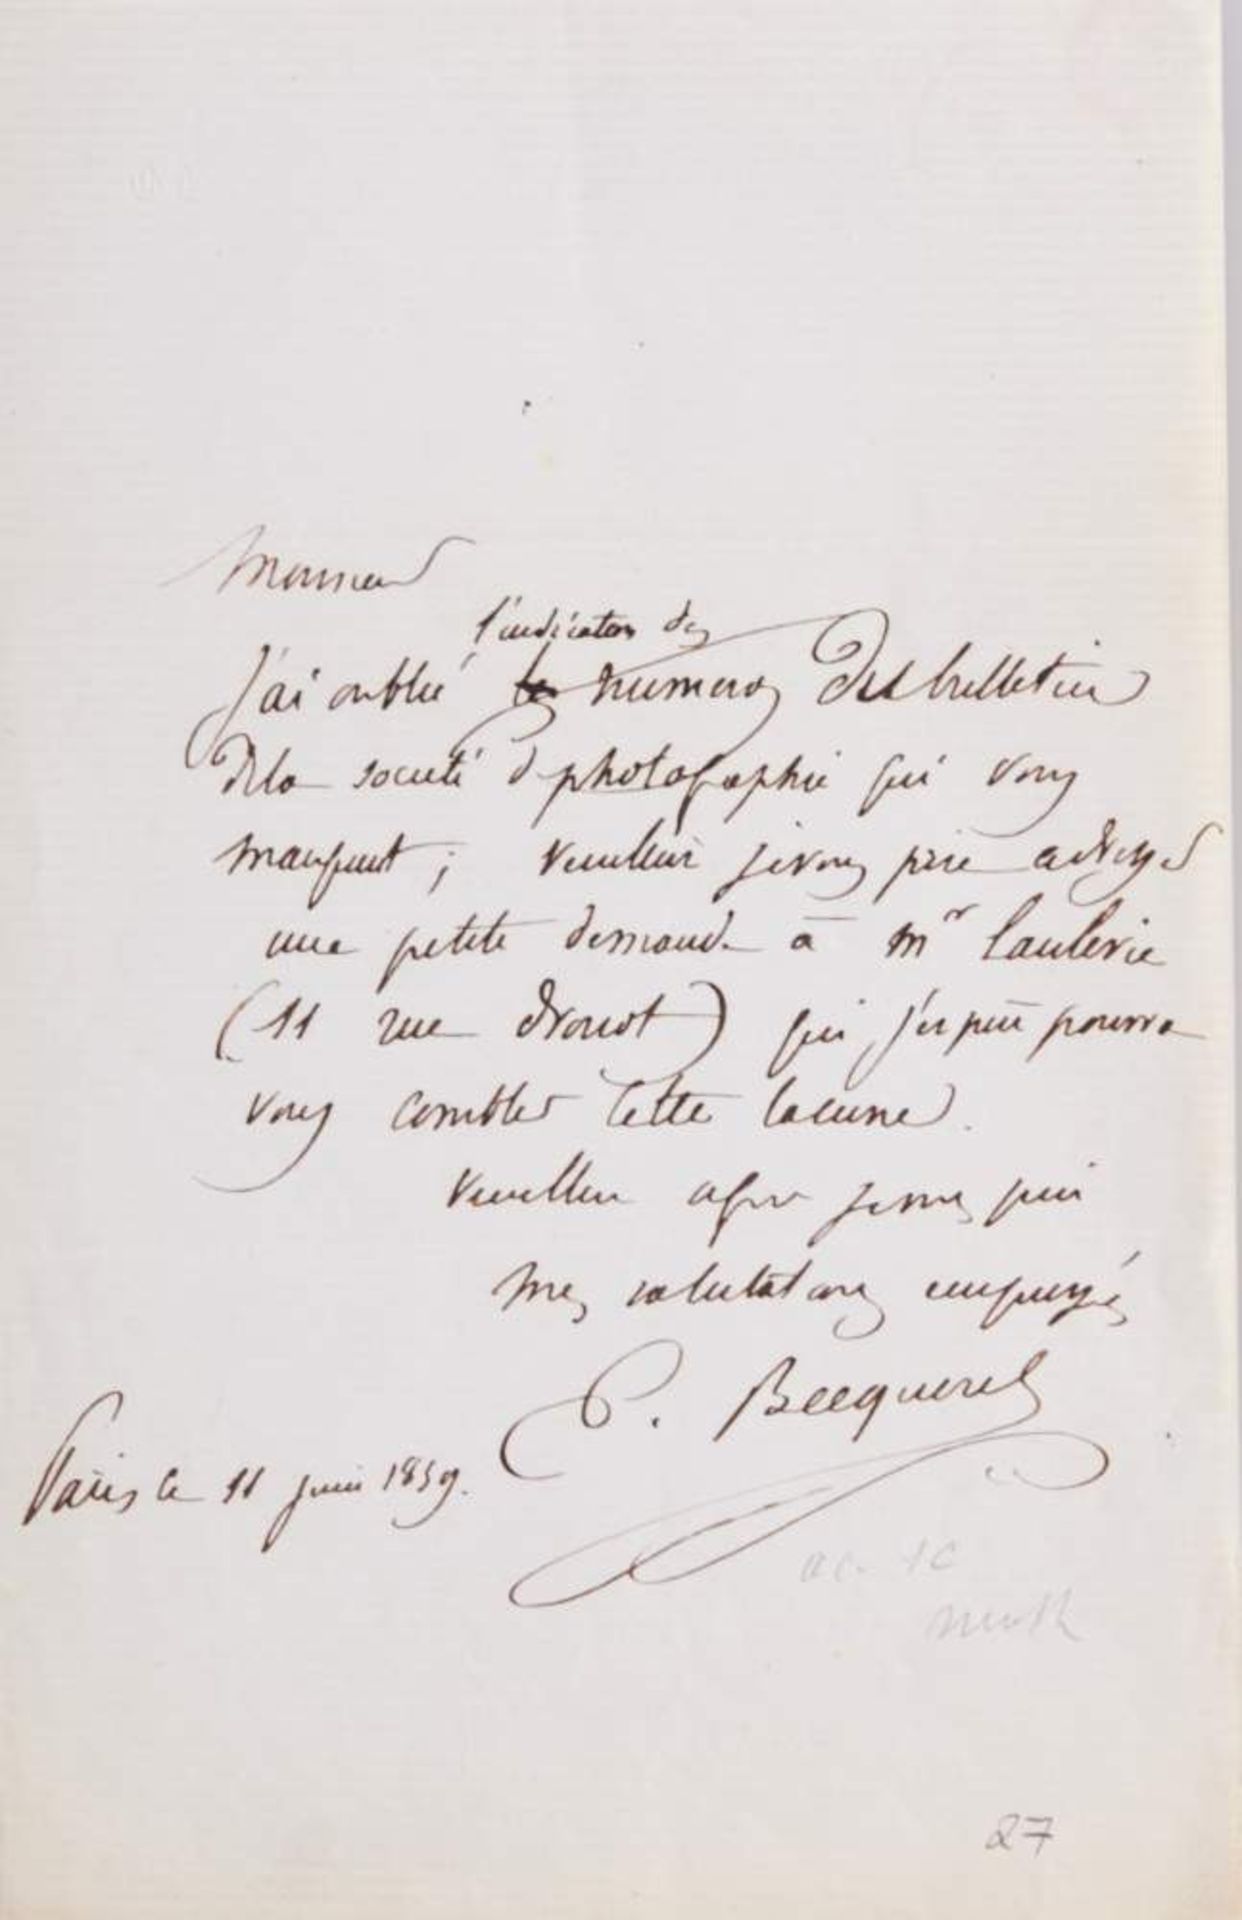 Monsieur
l'indication des
J'ai oublié les numeros des bulletins
de la societé de photographie qui vous
manquent ; veuillez je vous prie adresser
une petite demande à Mr Laulerie
(11 rue Drouot) qui j'espère pourra
vous combler cette lacune.
Veuillez agréer je vous prie
mes salutations empressées
E. Becquerel
Paris le 11 juin 1859.
27